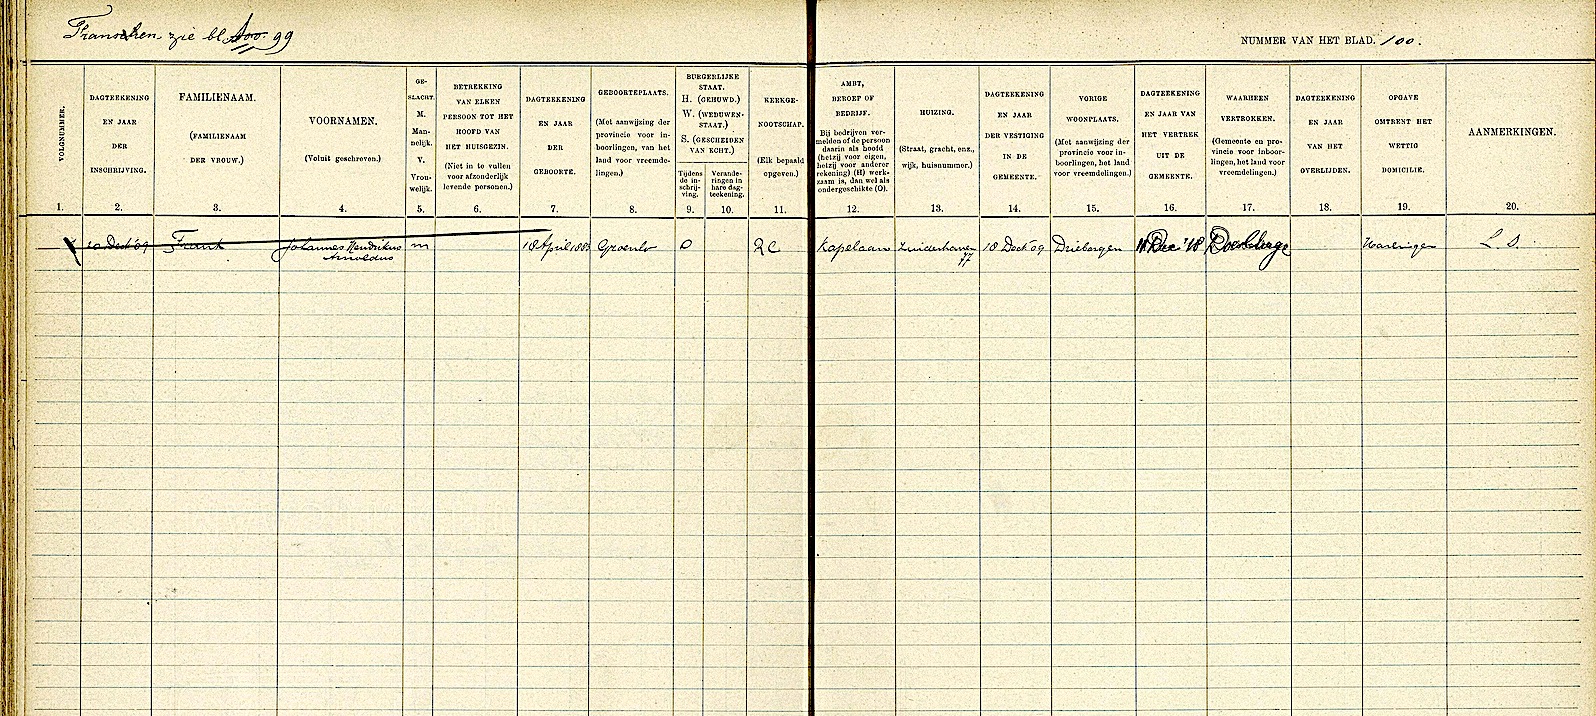 Franschen zie bl. 100. 99
NUMMER VAN HET BLAD. 100.
VOLGNUMMER.
1.
DAGTEEKENING
EN JAAR
DER
INSCHRIJVING.
2.
FAMILIENAAM.
(FAMILIENAAM
DER VROUW.)
3.
VOORNAMEN.
(Voluit geschreven.)
4.
GE-
SLACHT.
M.
Man-
nelijk.
V.
Vrou-
welijk.
5.
BETREKKING
VAN ELKEN
PERSOON TOT HET
HOOFD VAN
HET HUISGEZIN.
(Niet in te vullen
voor afzonderlijk
levende personen.)
6.
DAGTEEKENING
EN JAAR
DER
GEBOORTE.
7.
GEBOORTEPLAATS.
(Met aanwijzing der
provincie voor in-
boorlingen, van het
land voor vreemde-
lingen.)
8.
BURGERLIJKE
STAAT.
H. (GEHUWD.)
W. (WEDUWEN-
STAAT.)
S. (GESCHEIDEN
VAN ECHT.)
Tijdens
de in-
schrij-
ving.
9.
Verande-
ringen in
hare dag-
teekening.
10.
KERKGE-
NOOTSCHAP.
(Elk bepaald
opgeven.)
11.
AMBT,
BEROEP OF
BEDRIJF.
Bij bedrijven ver-
melden of de persoon
daarin als hoofd
(hetzij voor eigen,
hetzij voor anderer
rekening) (H) werk-
zaam is, dan wel als
ondergeschikte (O).
12.
HUIZING.
(Straat, gracht, enz.,
wijk, huisnummer.)
13.
DAGTEEKENING
EN JAAR
DER VESTIGING
IN DE
GEMEENTE.
14.
VORIGE
WOONPLAATS.
(Met aanwijzing der
provincie voor in-
boorlingen, het land
voor vreemdelingen.)
15.
DAGTEEKENING
EN JAAR VAN
HET VERTREK
UIT DE
GEMEENTE.
16.
WAARHEEN
VERTROKKEN.
(Gemeente en pro-
vincie voor inboor-
lingen, het land voor
vreemdelingen.)
17.
DAGTEEKENING
EN JAAR
VAN HET
OVERLIJDEN.
18.
OPGAVE
OMTRENT HET
WETTIG
DOMICILIE.
19.
AANMERKINGEN.
20.
Dect 09 Frank Johannes Hendrikus m 18 April Groenlo O RC Kapelaan Zuiderhaven 10 Dect 09 Driebergen Dec '18 Harlingen L.S.
Arnoldus 77